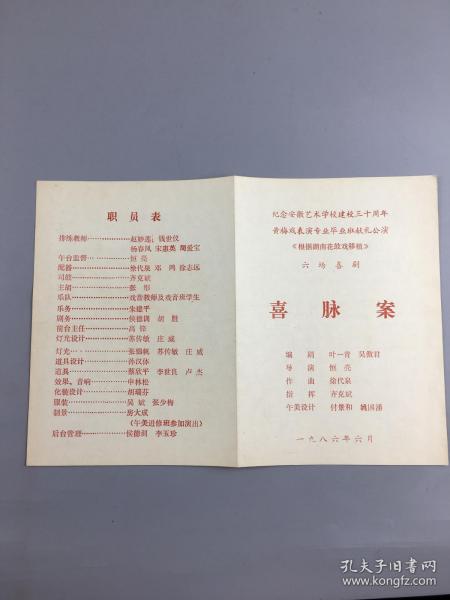 职员表
排练教师………赵妙莲 钱世仪
杨春凤 宋惠英 胡爱宝
午台监督……恒亮
配器…………徐代泉 邓鸿 徐志远
司鼓…………齐克斌
主胡…………张彤
乐队…………戏音教师及戏音班学生
乐务…………朱建平
剧务…………侯德训 胡胜
前台主任……高锋
灯光设计……苏传敏 庄威
灯光…………张锦帆 苏传敏 庄威
道具设计……孙汉体
道具…………蔡欣平 李世良 卢杰
效果、音响……申林松
化装设计……胡瑞芬
服装…………吴斌 张少梅
制景…………房大成
(午美进修班参加演出)
后台管理……侯德训 李玉珍
纪念安徽艺术学校建校三十周年
黄梅戏表演专业毕业班献礼公演
《根据湖南花鼓戏移植》
六场喜剧
喜脉案
编剧 叶一青 吴傲君
导演 恒亮
作曲 徐代泉
指挥 齐克斌
午美设计 付景和 姚国潘
一九八六年六月
孔夫子旧书网
www.kongfz.com